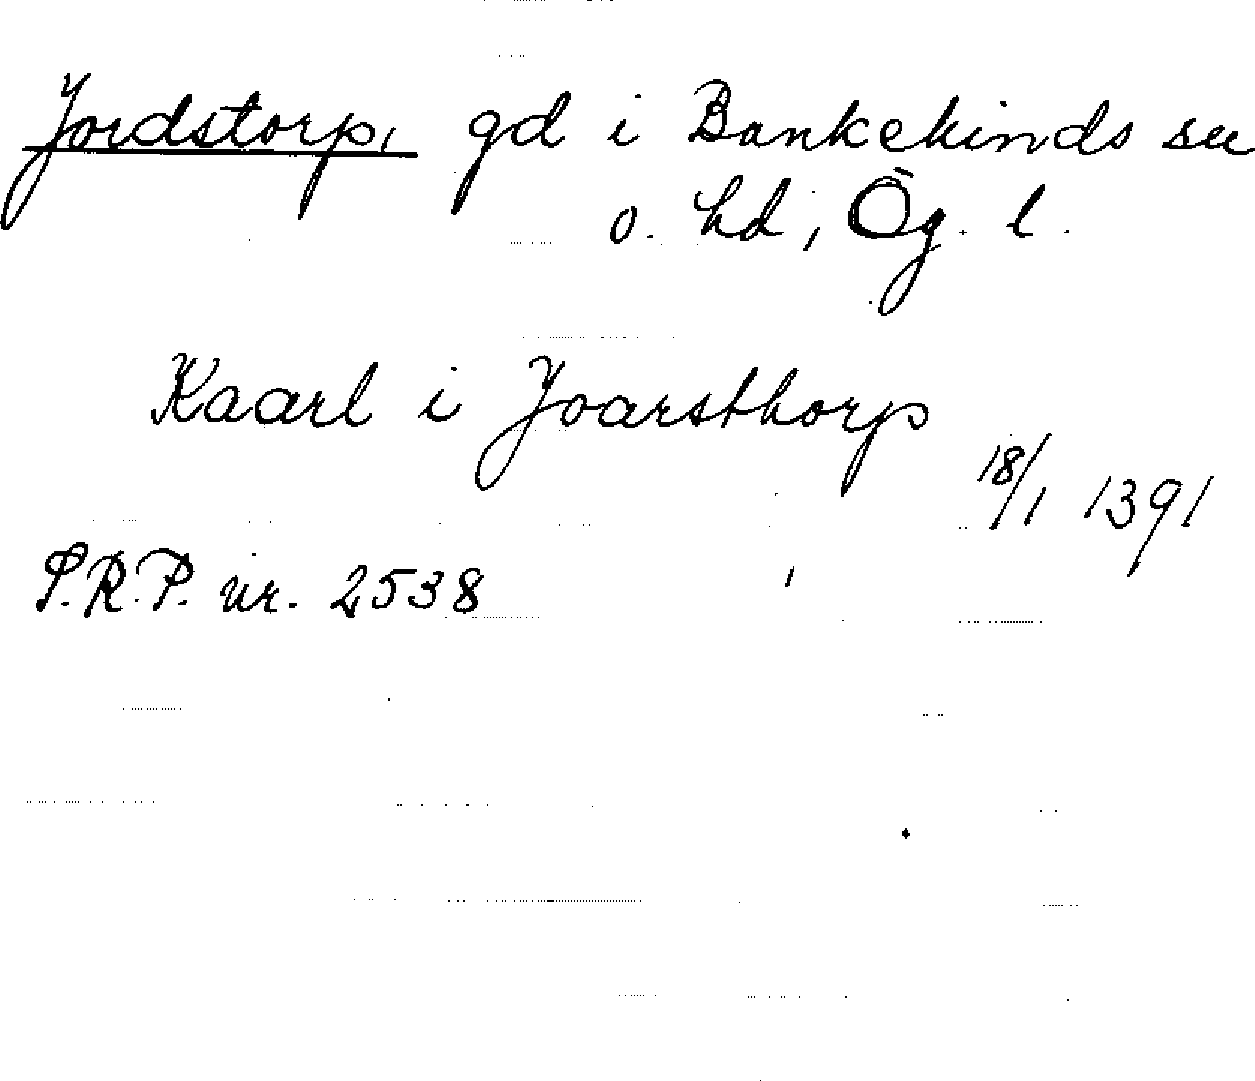 Jordstorp, gd i Bankekinds sn
o. hd, Ög. l.
Kaarl i Joarsthorp
18/1 1391
S.R.P. nr. 2538